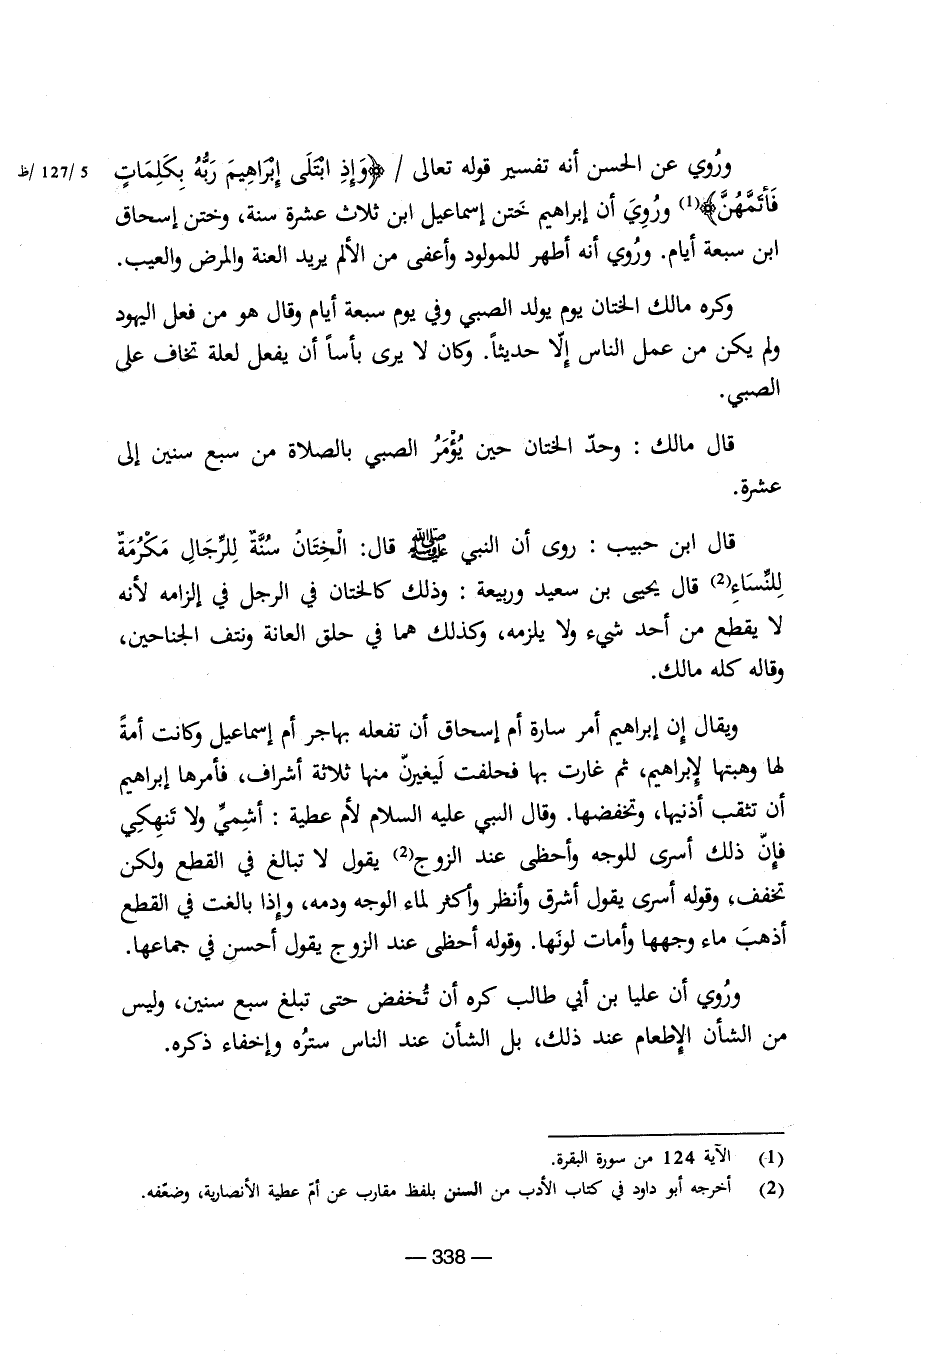 ورُوي عن الحسن أنه تفسير قوله تعالى / ﴿وَإِذِ ابْتَلَى إِبْرَاهِيمَ رَبُّهُ بِكَلِمَاتٍ 5 /127/ظ
فَأَتَمَّهُنَّ﴾(1) ورُوِيَ أن إبراهيم خَتن إسماعيل ابن ثلاث عشرة سنة، وختن إسحاق
ابن سبعة أيام. ورُوي أنه أطهر للمولود وأعفى من الألم يريد العنة والمرض والعيب.
وكره مالك الختان يوم يولد الصبي وفي يوم سبعة أيام وقال هو من فعل اليهود
ولم يكن من عمل الناس إلّا حديثاً. وكان لا يرى بأساً أن يفعل لعلة تخاف على
الصبي.
قال مالك : وحدّ الختان حين يُؤْمَرُ الصبي بالصلاة من سبع سنين إلى
عشرة.
قال ابن حبيب : روى أن النبي ﷺ قال: الْخِتَانُ سُنَّةٌ لِلرِّجَالِ مَكْرُمَةٌ
لِلنِّسَاءِ(2) قال يحيى بن سعيد وربيعة : وذلك كالختان في الرجل في إلزامه لأنه
لا يقطع من أحد شيء ولا يلزمه، وكذلك هما في حلق العانة ونتف الجناحين،
وقاله كله مالك.
ويقال إن إبراهيم أمر سارة أم إسحاق أن تفعله بهاجر أم إسماعيل وكانت أمةً
لها وهبتها لإبراهيم، ثم غارت بها فحلفت لَيغيرنّ منها ثلاثة أشراف، فأمرها إبراهيم
أن تثقب أذنيها، وتخفضها. وقال النبي عليه السلام لأم عطية : أشِميِّ ولا تَنهِكِي
فإنّ ذلك أسرى للوجه وأحظى عند الزوج(2) يقول لا تبالغ في القطع ولكن
تخفف، وقوله أسرى يقول أشرق وأنظر وأكثر لماء الوجه ودمه، وإذا بالغت في القطع
أذهبَ ماء وجهها وأمات لونَها. وقوله أحظى عند الزوج يقول أحسن في جماعها.
ورُوي أن عليا بن أبي طالب كره أن تُخفض حتى تبلغ سبع سنين، وليس
من الشأن الإطعام عند ذلك، بل الشأن عند الناس سترُه وإخفاء ذكره.
(1) الآية 124 من سورة البقرة.
(2) أخرجه أبو داود في كتاب الأدب من السنن بلفظ مقارب عن أمّ عطية الأنصارية، وضعّفه.
— 338 —